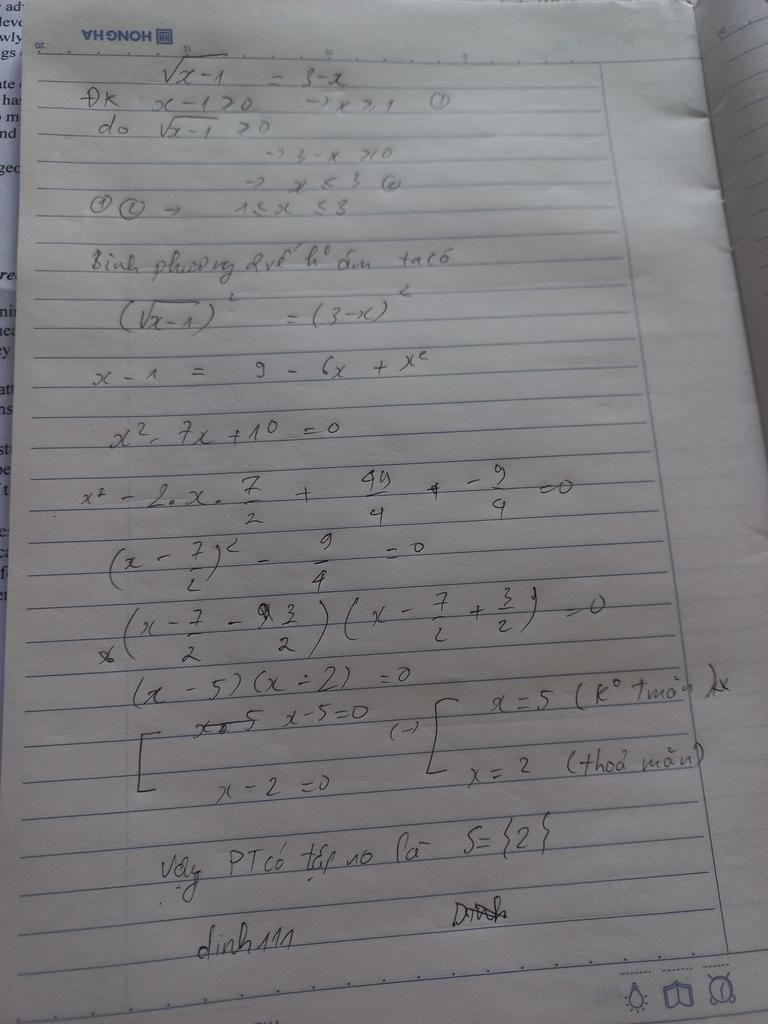 HONG HA
√x-1 = 3-x
ĐK x-1 ≥0 → x ≥ 1 ①
do √x-1 ≥0
→ 3-x ≥0
→ x ≤ 3 ②
① ② → 1≤x ≤3
Bình phương 2 vế k° âm ta có
(√x-1)² = (3-x)²
x - 1 = 9 - 6x + x²
x² - 7x + 10 = 0
x² - 2.x.7/2 + 49/4 - 9/4 =0
(x - 7/2)² - 9/4 = 0
(x - 7/2 - 3/2)(x - 7/2 + 3/2) =0
(x - 5)(x - 2) =0
x-5=0 (→) x=5 (k° t mãn)
x-2 =0 x=2 (thoả mãn)
Vậy PT có tập no là S={2}
dinh111